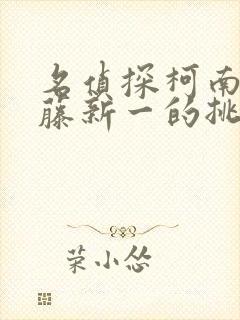 名侦探柯南
藤新一的挑
荣小怂